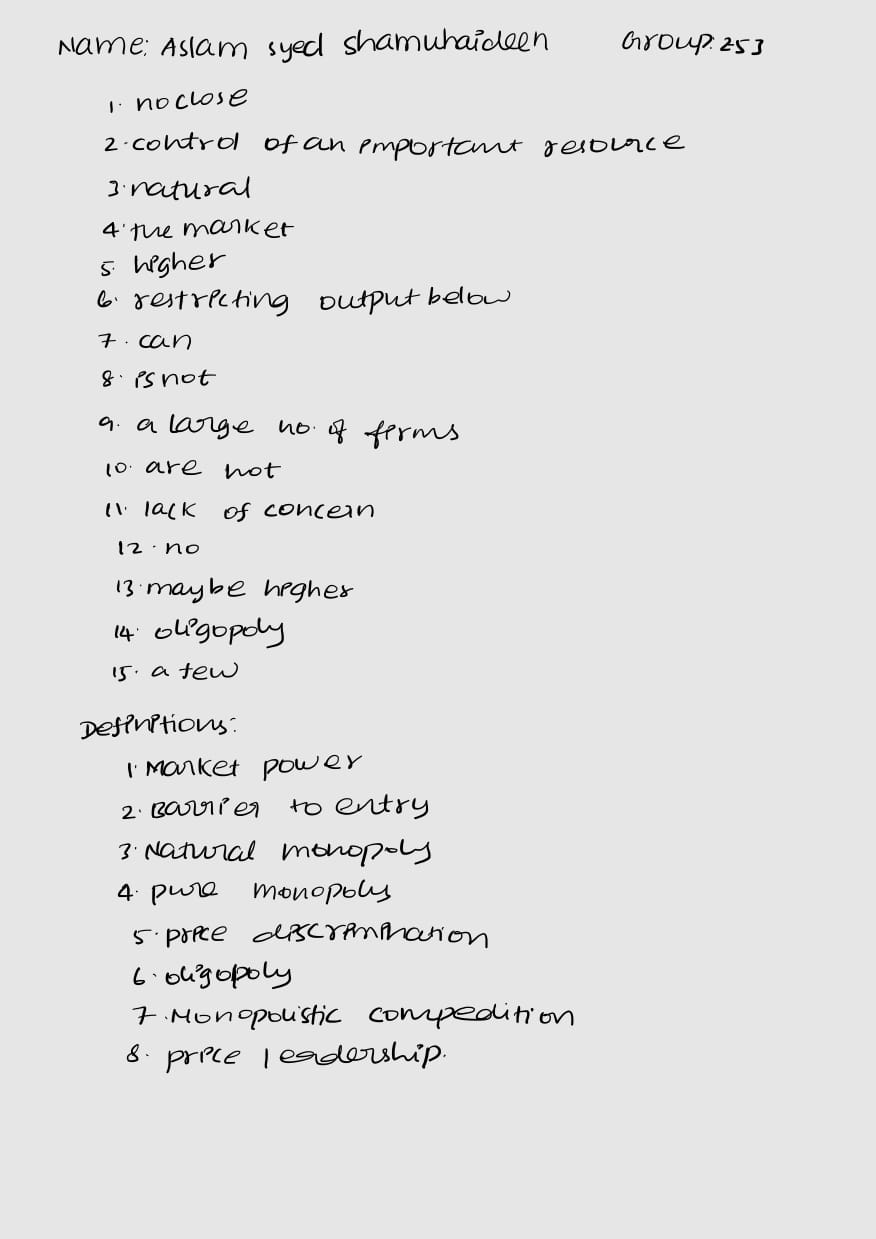 Name: Aslam syed shamuhaideen Group: 253
1. no close
2. control of an important resource
3. natural
4. the market
5. higher
6. restricting output below
7. can
8. is not
9. a large no. of firms
10. are not
11. lack of concern
12. no
13. maybe higher
14. oligopoly
15. a few
Definitions:
1. Market power
2. Barrier to entry
3. Natural monopoly
4. pure monopoly
5. price discrimination
6. oligopoly
7. Monopolistic compedition
8. price leadership.